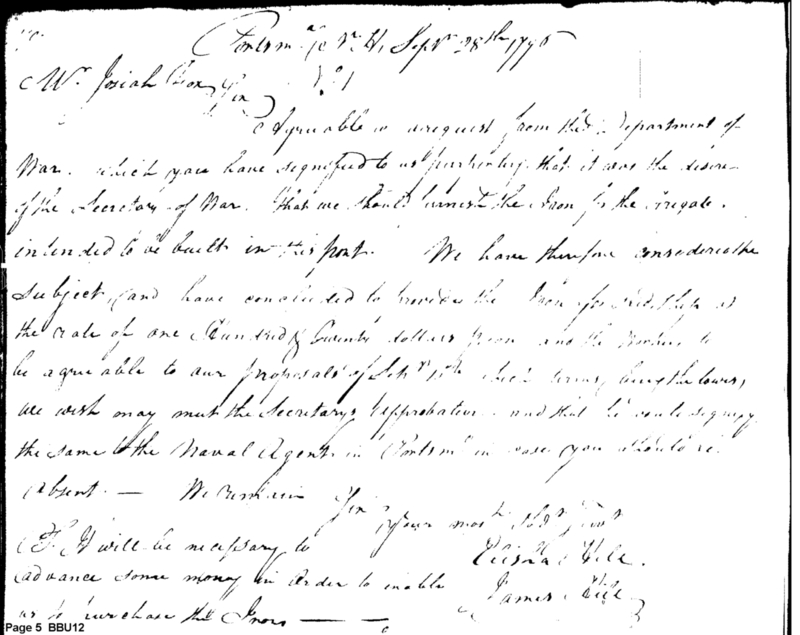 Portsmo N. H, Sepr 28th 1795
Mr Josiah Fox No 1
Sir
Agreeable to a request from the Department of
War. which you have signified to us purporting that it was the desire
of the Secretary of War. that we should furnish the Iron for the Frigate.
intended to be built in this port. We have therefore considered the
Subject, and have concluded to provide the Iron for said Ship at
the rate of one Hundred & twenty dollars and the to
be agreeable to our proposals of 15th which terms, being the lowest,
we wish may meet the Secretarys approbation. and that he would signify
the same to the Naval Agent in Portsmo in case you should be
absent. — We remain Sir
your most
Elisha Hill.
James Hill
It will be necessary to
advance some money in order to enable
us to purchase the Iron — —
Page 5 BBU12